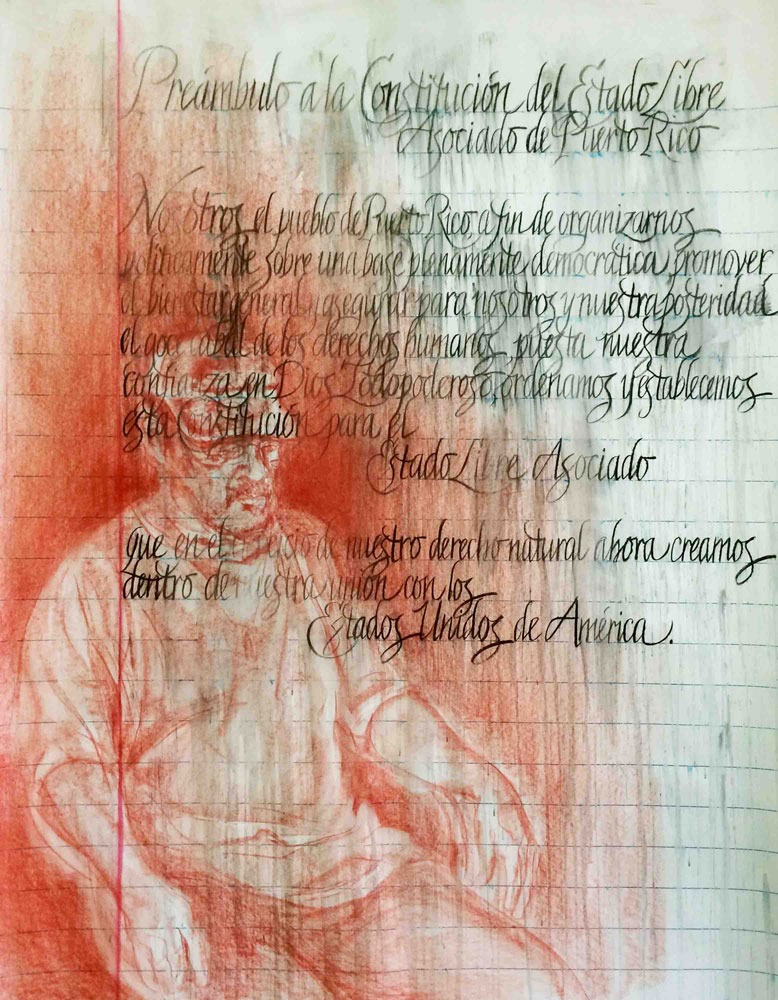 Preámbulo a la Constitución del Estado Libre
Asociado de Puerto Rico
Nosotros, el pueblo de Puerto Rico, a fin de organizarnos
políticamente sobre una base plenamente democrática, promover
el bienestar general y asegurar para nosotros y nuestra posteridad
el goce cabal de los derechos humanos, puesta nuestra
confianza en Dios Todopoderoso, ordenamos y establecemos
esta Constitución para el
Estado Libre Asociado
que en el ejercicio de nuestro derecho natural ahora creamos
dentro de nuestra unión con los
Estados Unidos de América.